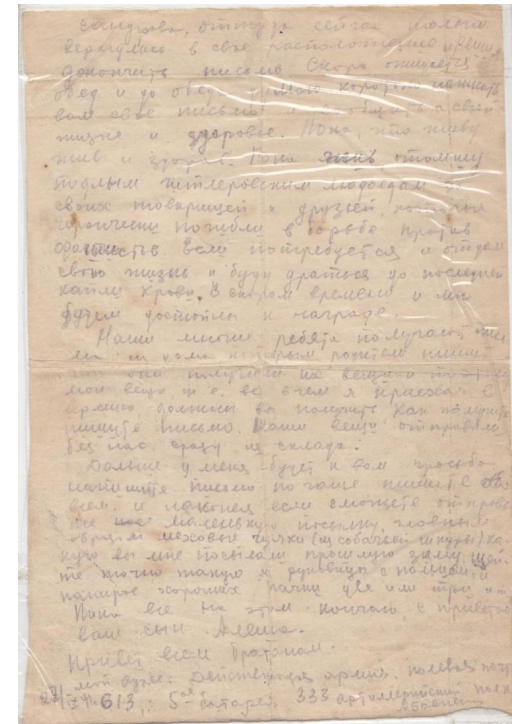 откуда сейчас только
вернулись в свое расположение и решил
докончить письмо. Скоро ожидается
обед и до обеда думаю коротко написать
вам свое письмо и сообщить о своей
жизни и здоровье. Пока, что живу
жив и здоров. Пока отомщу
подлым гитлеровским людоедам за
своих товарищей и друзей, которые
героически погибли в борьбе против
Если потребуется и отдам
свою жизнь и буду драться до последней
капли крови. В скором времени и мы
будем достойны к награде.
Наши многие ребята получают
кому родители пишут
что они получили их вещи
мои вещи т.е. во в чем я приехал в
армию должны вы получить как получите
пишите письмо. Наши вещи отправляли
без нас, сразу из склада.
Дальше у меня будет к вам просьба
напишите письмо по чаще пишите обо
всем. и наконец если сможете отправь
те маленькую посылку, главным
образом меховые чулки (из собачьей шкуры) ка-
кую вы мне посылали прошлую зиму,
те точно такую и рукавицы с пальцами, и
папирос хороших пачки две или три и т.п.
Пока все на этом кончаю, с приветом
ваш сын Алеша.
Привет всем братанам.
Мой адрес: Действующая армия, полевая почта
№ 613, 5ая батарея 333 артиллерийский полк